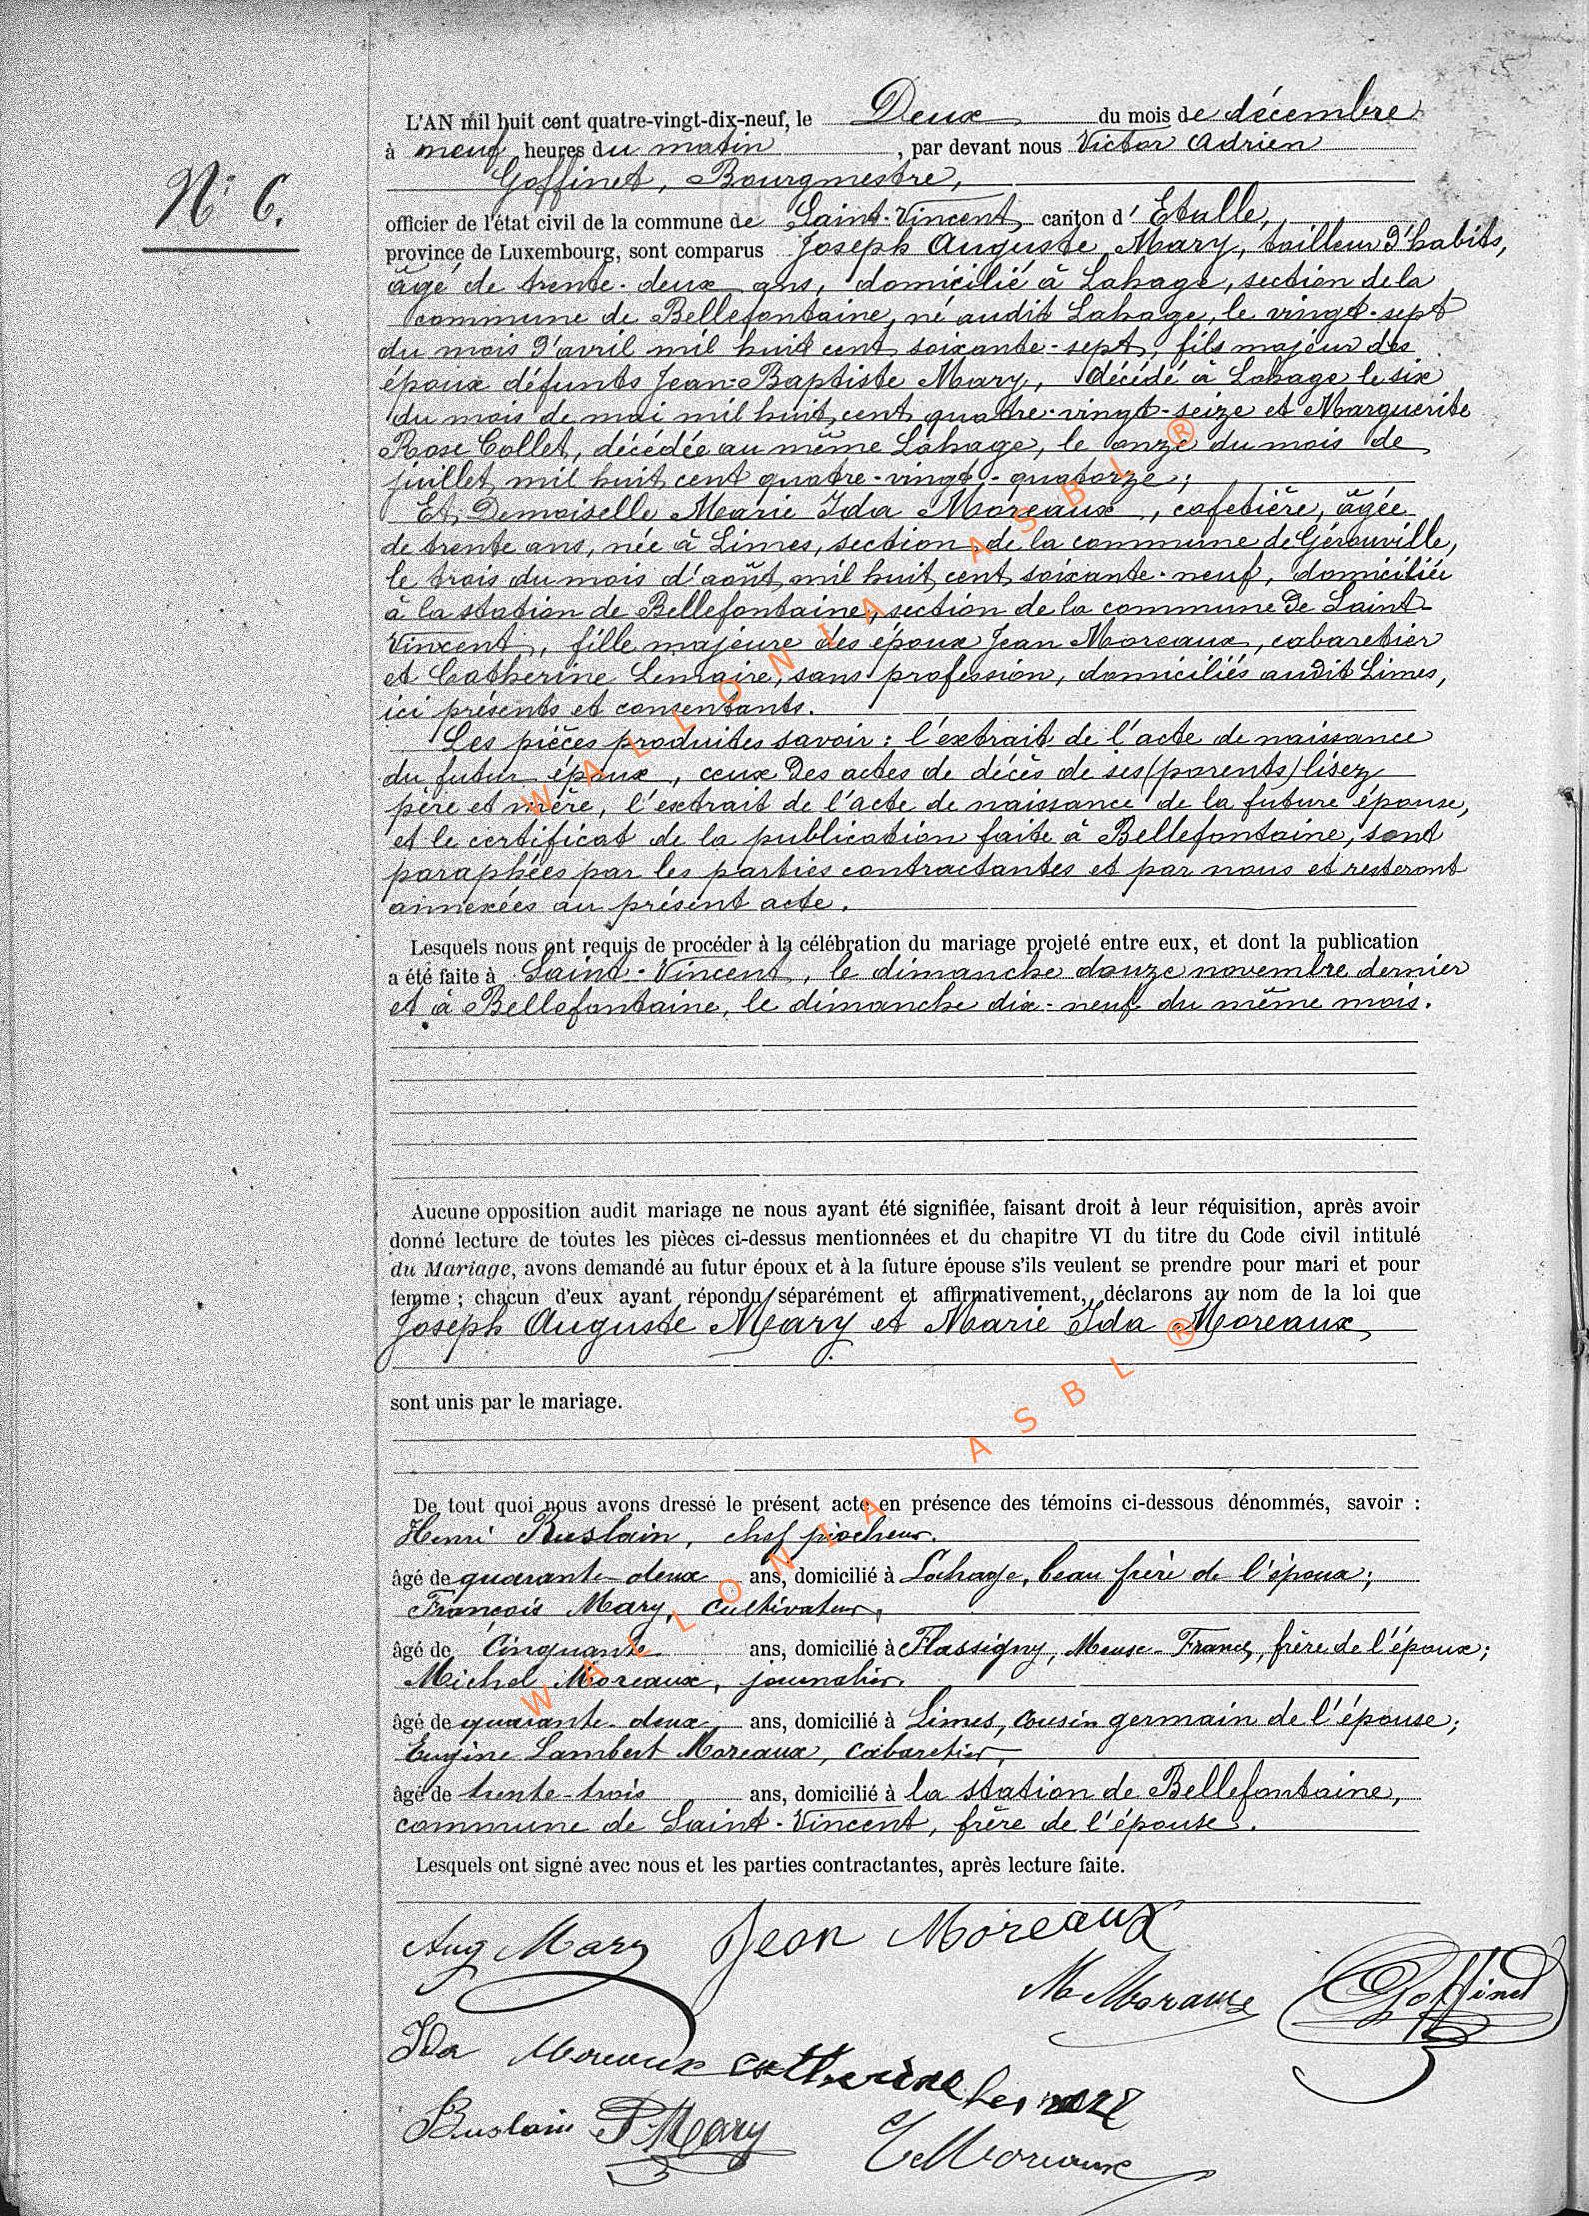 L'AN mil huit cent quatre-vingt-dix-neuf, le Deux du mois de décembre
N° 6.
à neuf heures du matin, par devant nous Victor Adrien
Goffinet, Bourgmestre,
officier de l'état civil de la commune de Saint-Vincent, canton d'Etalle,
province de Luxembourg, sont comparus Joseph Auguste Mary, tailleur d'habits,
âgé de trente-deux ans, domicilié à Lahage, section de la
commune de Bellefontaine, né audit Lahage, le vingt-sept
du mois d'avril mil huit cent soixante-sept, fils majeur des
époux défunts Jean-Baptiste Mary, décédé à Lahage le six
du mois de mai mil huit cent quatre-vingt-seize et Marguerite
Rose Collet, décédée au même Lahage, le onze du mois de
juillet mil huit cent quatre-vingt-quatorze;
Et Demoiselle Marie Ida Moreaux, cafetière, âgée
de trente ans, née à Limes, section de la commune de Gérouville,
le trois du mois d'août mil huit cent soixante-neuf, domiciliée
à la station de Bellefontaine, section de la commune de Saint-
Vincent, fille majeure des époux Jean Moreaux, cabaretier
et Catherine Lemaire, sans profession, domiciliés audit Limes,
ici présents et consentants.
Les pièces produites savoir : l'extrait de l'acte de naissance
du futur époux, ceux des actes de décès de ses (parents) lisez
père et mère, l'extrait de l'acte de naissance de la future épouse,
et le certificat de la publication faite à Bellefontaine, sont
paraphées par les parties contractantes et par nous et resteront
annexées au présent acte.
Lesquels nous ont requis de procéder à la célébration du mariage projeté entre eux, et dont la publication
a été faite à Saint-Vincent, le dimanche douze novembre dernier
et à Bellefontaine, le dimanche dix-neuf du même mois.
Aucune opposition audit mariage ne nous ayant été signifiée, faisant droit à leur réquisition, après avoir
donné lecture de toutes les pièces ci-dessus mentionnées et du chapitre VI du titre du Code civil intitulé
du Mariage, avons demandé au futur époux et à la future épouse s'ils veulent se prendre pour mari et pour
femme ; chacun d'eux ayant répondu séparément et affirmativement, déclarons au nom de la loi que
Joseph Auguste Mary et Marie Ida Moreaux
sont unis par le mariage.
De tout quoi nous avons dressé le présent acte en présence des témoins ci-dessous dénommés, savoir :
Henri Ruslain, chef piocheur.
âgé de quarante-deux ans, domicilié à Lahage, beau frère de l'époux;
François Mary, cultivateur,
âgé de Cinquante ans, domicilié à Flassigny, Meuse-France, frère de l'époux;
Michel Moreaux, journalier.
âgé de quarante-deux ans, domicilié à Limes, cousin germain de l'épouse;
Eugène Lambert Moreaux, cabaretier,
âgé de trente-trois ans, domicilié à la station de Bellefontaine,
commune de Saint-Vincent, frère de l'épouse.
Lesquels ont signé avec nous et les parties contractantes, après lecture faite.
Aug Mary Jean Moreaux
M Moraux Goffinet
Ida Moreaux catherine
Ruslain F Mary E Moreaux
WALLONIA ASBL ®
WALLONIA ASBL ®